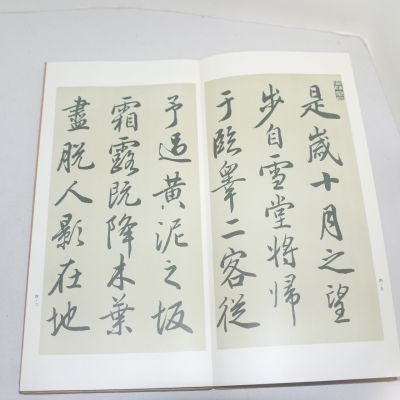 是歲十月之望
步自雪堂將歸
于臨皋二客從
予過黃泥之坂
霜露既降木葉
盡脱人影在地